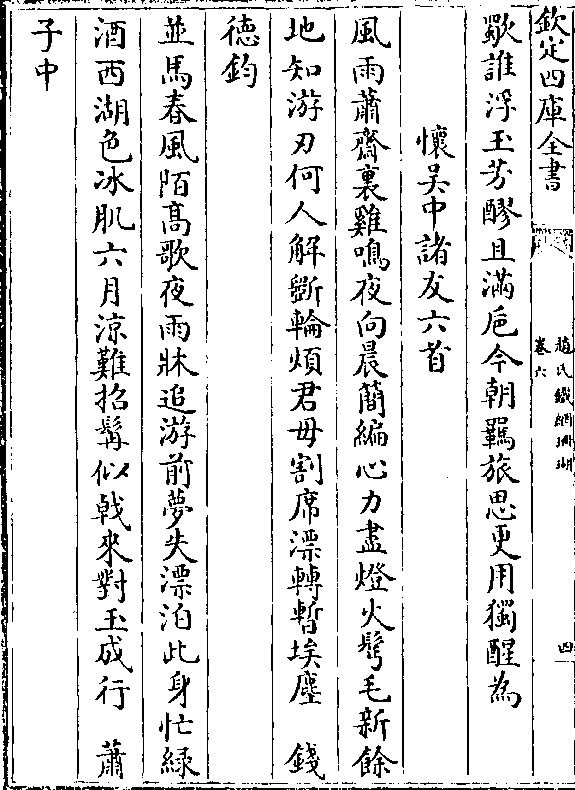 欽定四庫全書
趙氏鐵網珊瑚
卷六
四
歟誰浮玉芳醪且滿巵今朝羈旅思更用獨醒為
懷吳中諸友六首
風雨蕭齋裏雞鳴夜向晨簡編心力盡燈火鬢毛新餘
地知游刃何人解斵輪煩君毋割席漂轉暫埃塵　錢
德鈞
並馬春風陌高歌夜雨牀追游前夢失漂泊此身忙緑
酒西湖色冰肌六月涼難招髯似戟來對玉成行　蕭
子中